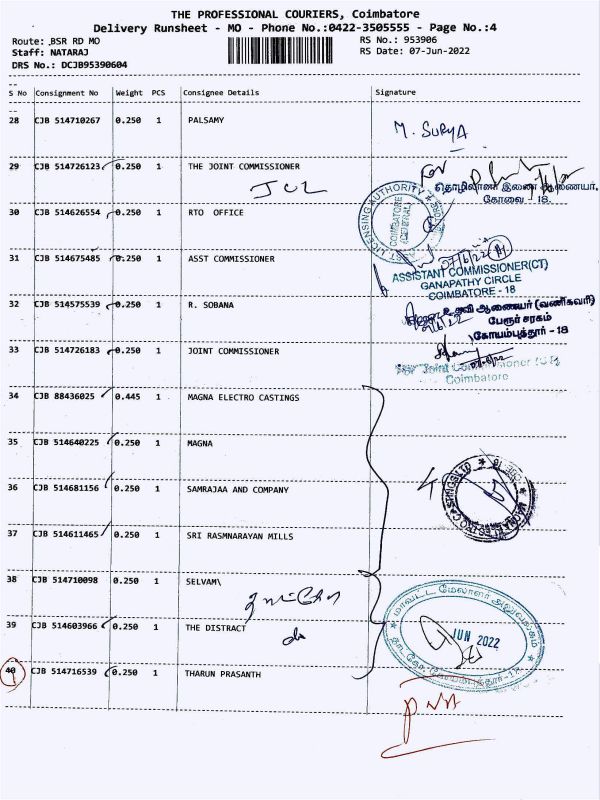 THE PROFESSIONAL COURIERS, Coimbatore
Delivery Runsheet - MO - Phone No.:0422-3505555 - Page No.:4
Route: ,BSR RD MO RS No.: 953906
Staff: NATARAJ RS Date: 07-Jun-2022
DRS No.: DCJB95390604
S No Consignment No Weight PCS Consignee Details Signature
28 CJB 514710267 0.250 1 PALSAMY
M. SURYA
29 CJB 514726123 0.250 1 THE JOINT COMMISSIONER
JCL
For
தொழிலாளர் இணை ஆணையர்.
கோவை - 18.
30 CJB 514626554 0.250 1 RTO OFFICE
LICENSING AUTHORITY
COIMBATORE
(CENTRAL)
31 CJB 514675485 0.250 1 ASST COMMISSIONER
07/6/22
ASSISTANT COMMISSIONER(CT)
GANAPATHY CIRCLE
COIMBATORE - 18
32 CJB 514575539 0.250 1 R. SOBANA
உதவி ஆணையர் (வணிகவரி)
பேரூர் சரகம்
கோயம்புத்தூர் - 18
33 CJB 514726183 0.250 1 JOINT COMMISSIONER
For Joint Commissioner (CT)
Coimbatore
34 CJB 88436025 0.445 1 MAGNA ELECTRO CASTINGS
35 CJB 514640225 0.250 1 MAGNA
4
MAGNA ELECTRO CASTINGS LTD
36 CJB 514681156 0.250 1 SAMRAJAA AND COMPANY
37 CJB 514611465 0.250 1 SRI RASMNARAYAN MILLS
38 CJB 514710098 0.250 1 SELVAM\
39 CJB 514603966 0.250 1 THE DISTRACT
do
மாவட்ட மேலாளர் அலுவலகம்
JUN 2022
40 CJB 514716539 0.250 1 THARUN PRASANTH